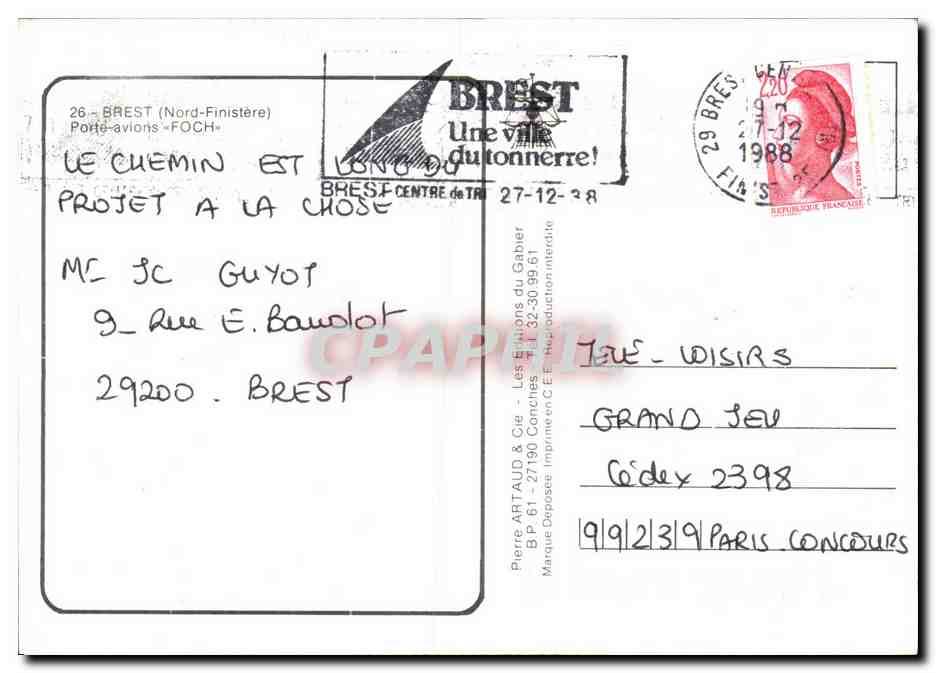 26 - BREST (Nord-Finistère)
Porte-avions «FOCH»
LE CHEMIN EST LONG DU
PROJET A LA CHOSE
Mr JC GUYOT
9_ Rue E. Baudot
29200 . BREST
BREST
Une ville
du tonnerre!
BREST CENTRE de TRI 27-12-88
29 BREST
27-12
1988
FINIST
2,20
POSTES
REPUBLIQUE FRANÇAISE
Pierre ARTAUD & Cie - Les Editions du Gabier
B P 61 - 27190 Conches - Tél. 32-30.99.61
Marque Déposée Imprimé en C E E - Reproduction interdite
TELE - LOISIRS
GRAND JEU
Cédex 2398
99239 PARIS CONCOURS
CPAPHIL